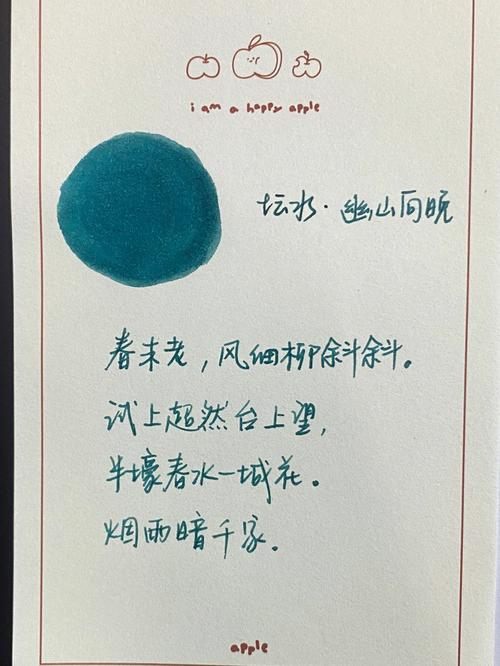 i am a happy apple
坛水·幽山向晚
春未老，风细柳斜斜。
试上超然台上望，
半壕春水一城花。
烟雨暗千家。
apple